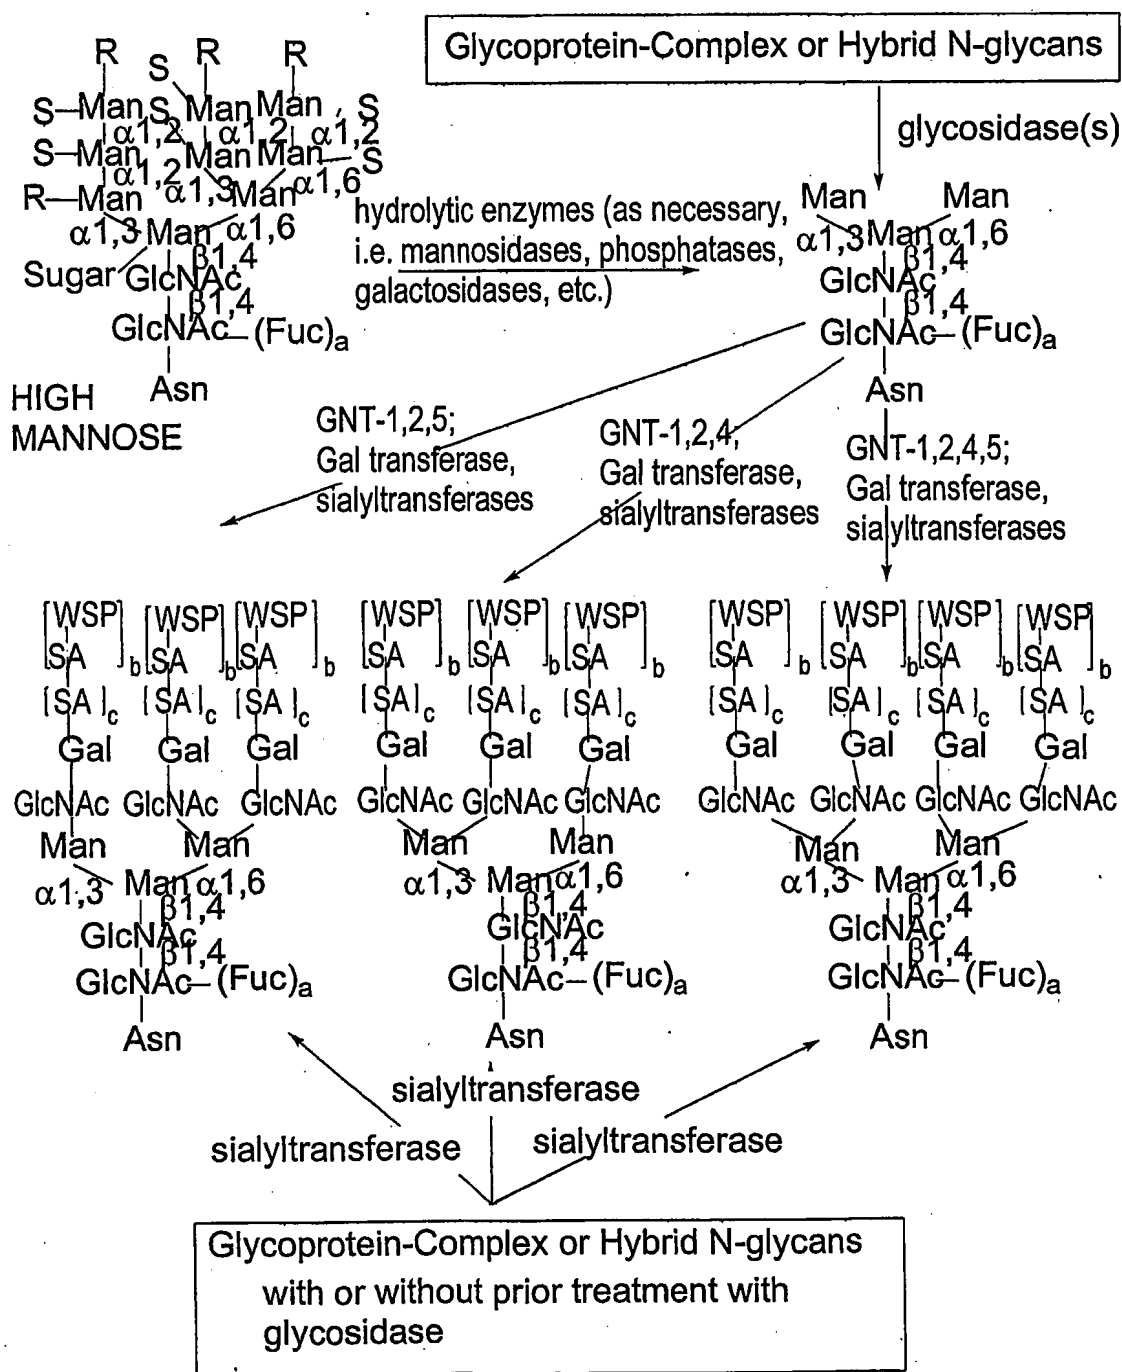 Glycoprotein-Complex or Hybrid N-glycans
glycosidase(s)
R S R R
S–Man S Man Man S
α1,2 α1,2 α1,2
S–Man Man Man S
α1,2 α1,3 α1,6
R–Man Man
α1,3 Man α1,6
β1,4
Sugar GlcNAc
β1,4
GlcNAc–(Fuc)a
Asn
HIGH
MANNOSE
hydrolytic enzymes (as necessary,
i.e. mannosidases, phosphatases,
galactosidases, etc.)
Man Man
α1,3 Man α1,6
β1,4
GlcNAc
β1,4
GlcNAc–(Fuc)a
Asn
GNT-1,2,5;
Gal transferase,
sialyltransferases
GNT-1,2,4;
Gal transferase,
sialyltransferases
GNT-1,2,4,5;
Gal transferase,
sialyltransferases
[WSP [WSP [WSP
SA]b SA]b SA]b
[SA]c [SA]c [SA]c
Gal Gal Gal
GlcNAc GlcNAc GlcNAc
Man Man
α1,3 Man α1,6
β1,4
GlcNAc
β1,4
GlcNAc–(Fuc)a
Asn
[WSP [WSP [WSP
SA]b SA]b SA]b
[SA]c [SA]c [SA]c
Gal Gal Gal
GlcNAc GlcNAc GlcNAc
Man Man
α1,3 Man α1,6
β1,4
GlcNAc
β1,4
GlcNAc–(Fuc)a
Asn
[WSP [WSP [WSP [WSP
SA]b SA]b SA]b SA]b
[SA]c [SA]c [SA]c [SA]c
Gal Gal Gal Gal
GlcNAc GlcNAc GlcNAc GlcNAc
Man Man
α1,3 Man α1,6
β1,4
GlcNAc
β1,4
GlcNAc–(Fuc)a
Asn
sialyltransferase
sialyltransferase
sialyltransferase
Glycoprotein-Complex or Hybrid N-glycans
with or without prior treatment with
glycosidase